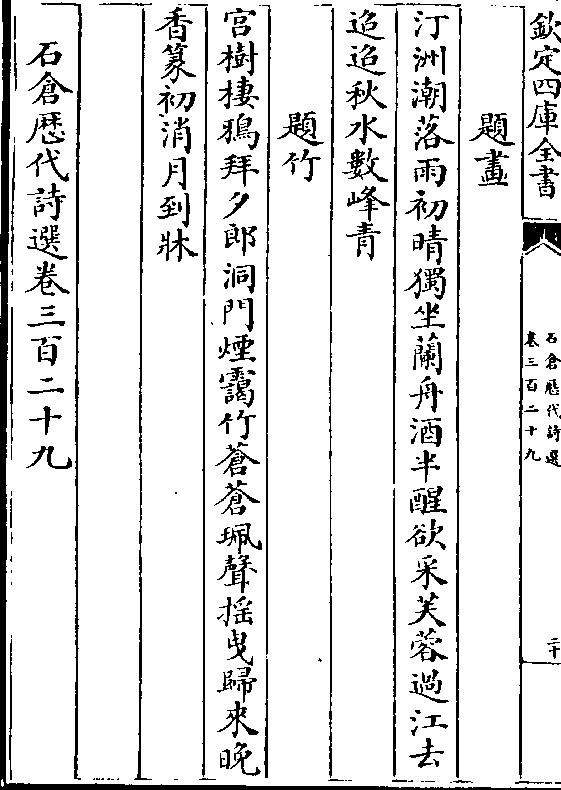 欽定四庫全書
石倉歷代詩選
卷三百二十九
二十
題畫
汀洲潮落雨初晴獨坐蘭舟酒半醒欲采芙蓉過江去
迢迢秋水數峰青
題竹
宮樹棲鴉拜夕郎洞門煙靄竹蒼蒼珮聲揺曳歸來晚
香篆初消月到牀
石倉歷代詩選卷三百二十九